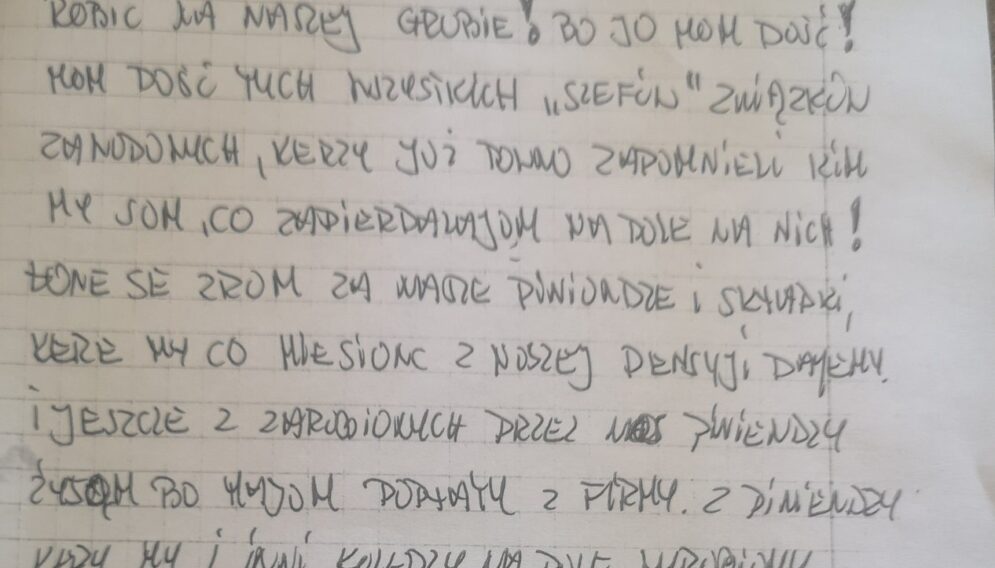 ROBIĆ NA NASZEJ GRUBIE! BO JO MOM DOŚĆ!
MOM DOŚĆ TYCH WSZYSTKICH „SZEFÓW" ZWIĄZKÓW
ZAWODOWYCH, KERZY JUŻ DOWNO ZAPOMNIELI KIM
MY SOM, CO ZAPIERDALAJOM NA DOLE NA NICH!
SE ZROM ZA NASZE PIWIONDZE I SKŁADKI,
KERE MY CO MIESIONC Z NOSZEJ PENSYJI DAJEMY.
I JESZCZE Z ZAROBIONYCH PRZEZ NOS PIWIENDZY
BO MAJOM DOPŁATY Z FIRMY. Z PINIENDZY
MY I INNI KOLEDZY NA DOLE